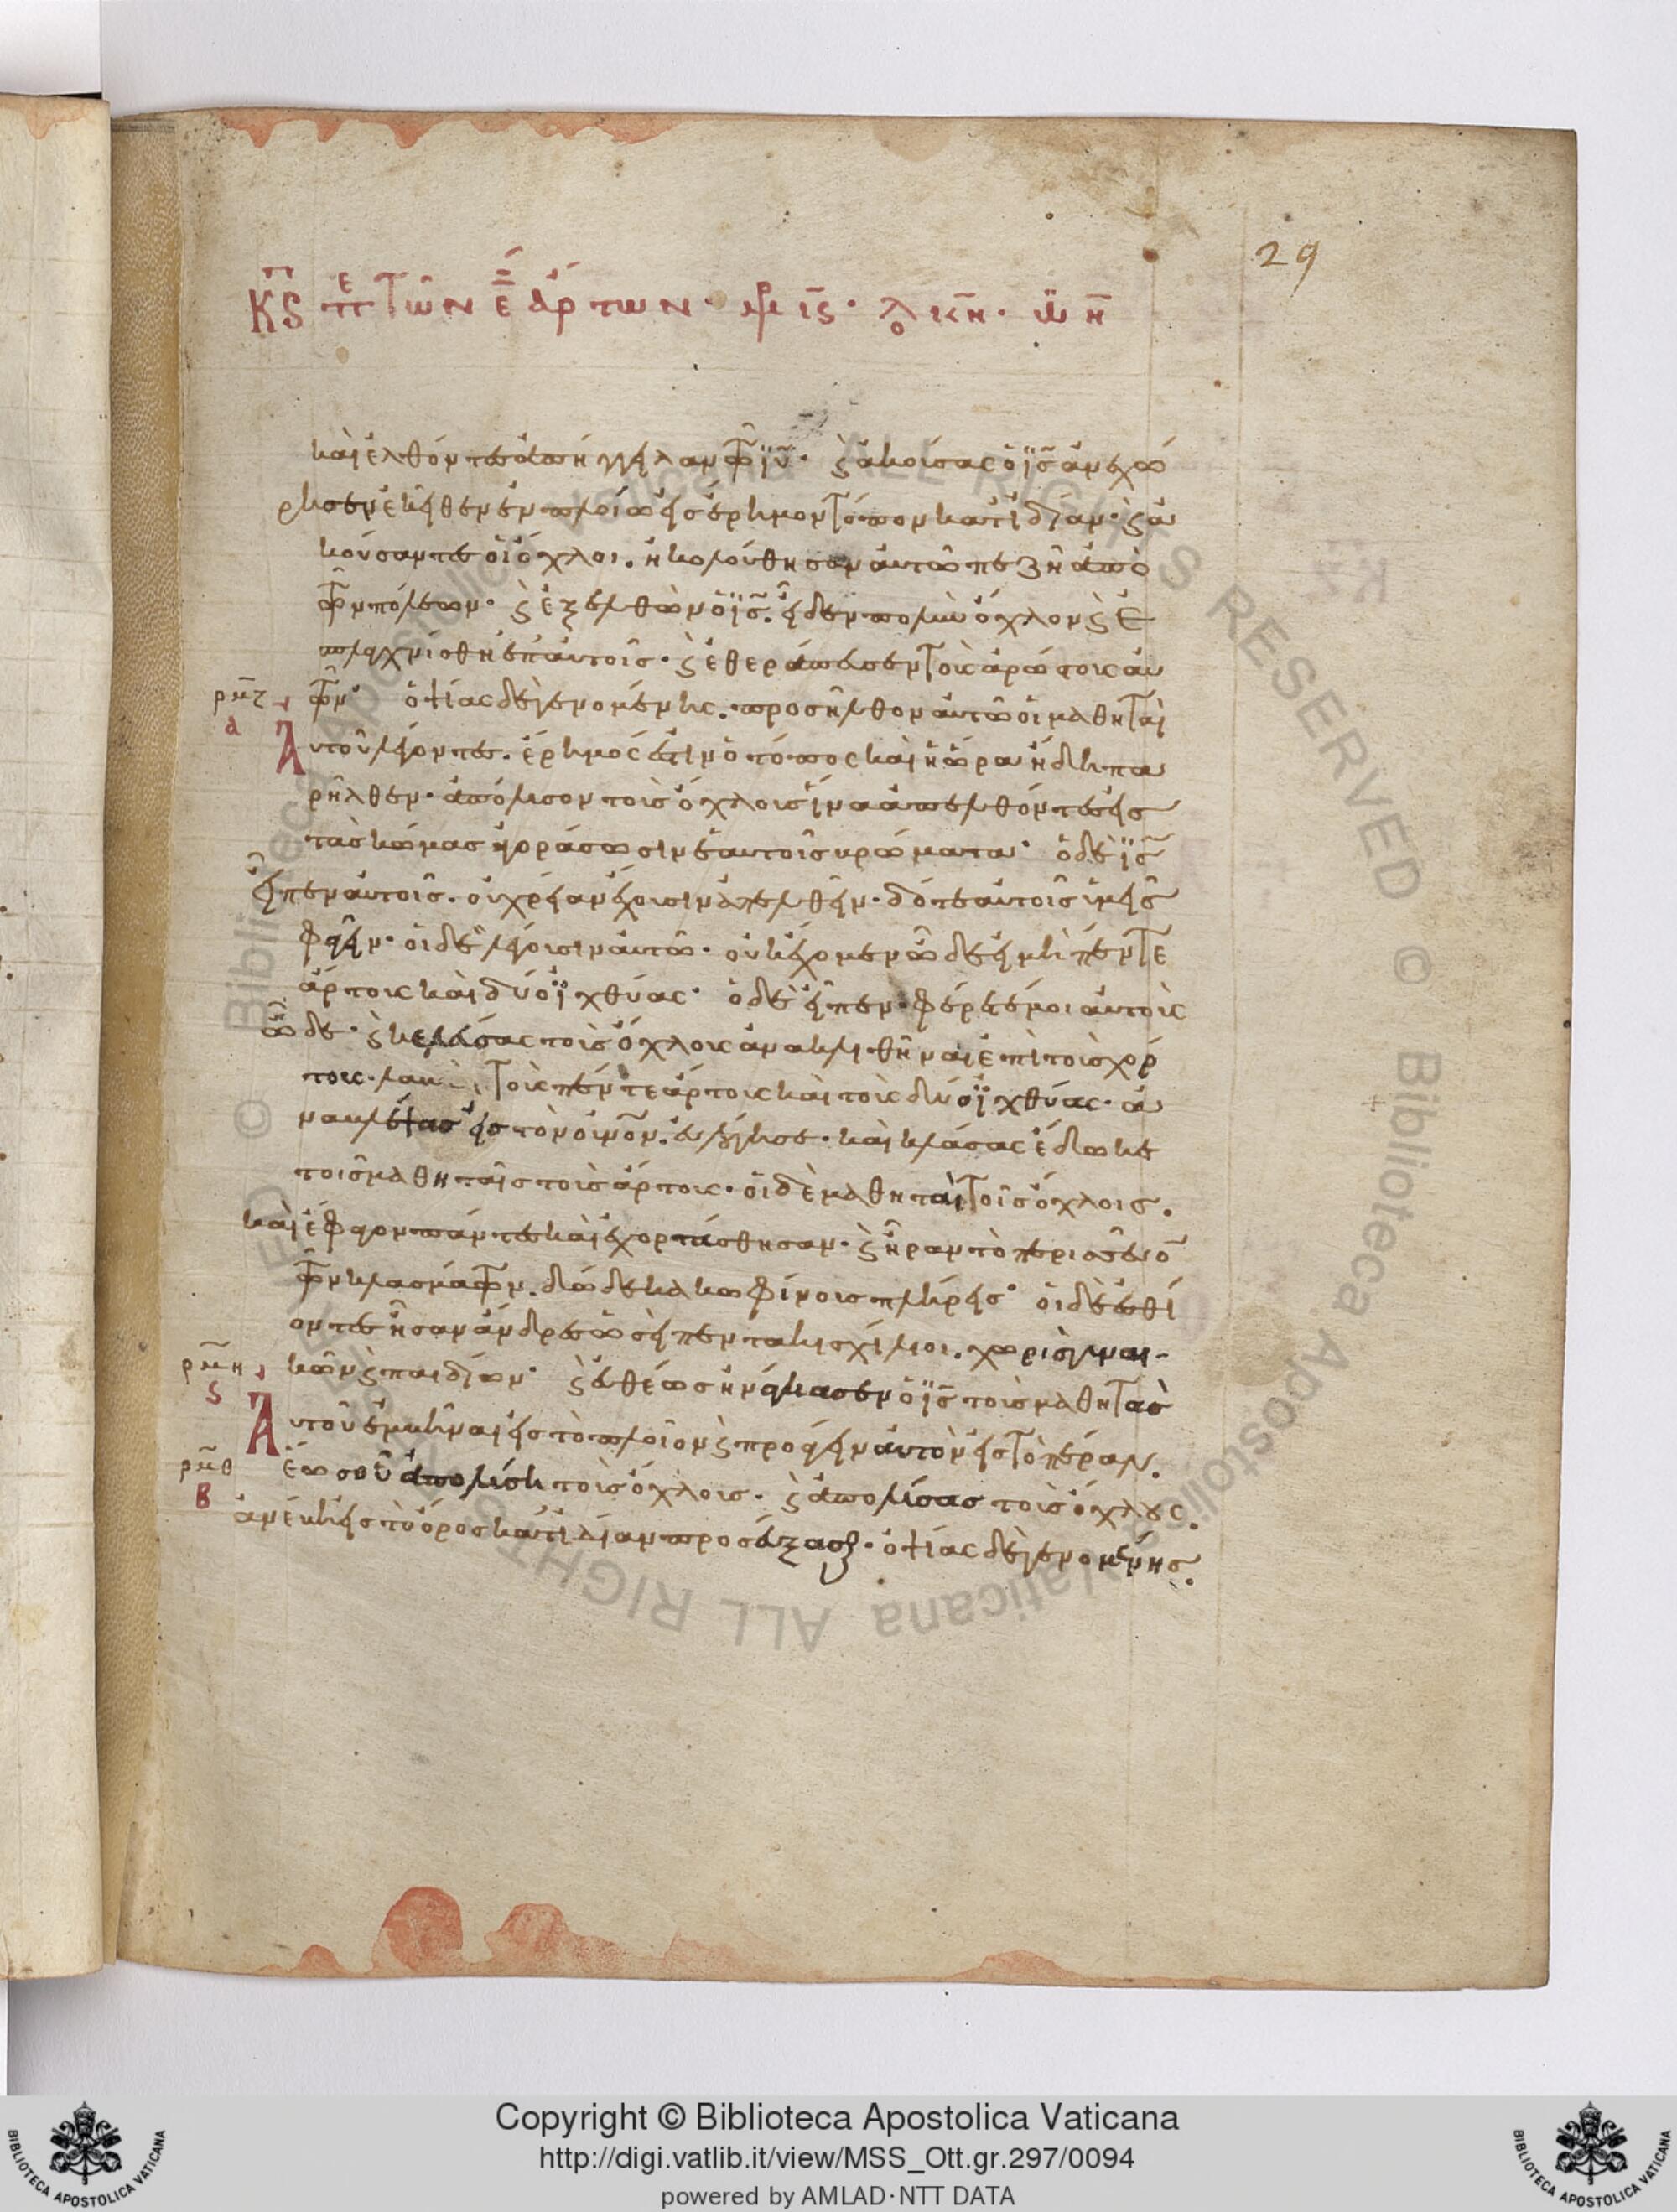 29
Κϛ πε τῶν ε ἄρτων· μρ ιϛ· λο κη· ιω η
καὶ ἐλθόντες ἀπήγγειλαν τῶ ἰυ· ϛ ἀκούσας ὁ ις ἀνεχώ
ρησεν ἐκεῖθεν ἐν πλοίω εἰς ἔρημον τόπον κατιδίαν· ϛ ἀ
κούσαντες οἱ ὄχλοι. ἠκολούθησαν αὐτῶ πεζῆ ἀπὸ
τῶν πόλεων· ϛ ἐξελθὼν ὁ ις. εἶδεν πολὺν ὄχλον ϛ ἐ
σπλαχνίσθη ἐπαὐτοῖς· ϛ ἐθεράπευσεν τοὺς ἀρώστους αὐ
ρμζ τῶν· ὀψίας δὲ γενομένης. προσῆλθον αὐτῶ οἱ μαθηταὶ
α Αὐτοῦ λέγοντες. ἔρημός ἐστιν ὁ τόπος καὶ ἡ ὥρα ἤδη πα
ρῆλθεν· ἀπόλυσον τοὺς ὄχλους ἵνα ἀπελθόντες εἰς
τὰς κώμας ἀγοράσωσιν ἑαυτοῖς βρώματα· ὁ δὲ ις
εἶπεν αὐτοῖς. οὐ χρείαν ἔχουσιν ἀπελθεῖν. δότε αὐτοῖς ὑμεῖς
φαγεῖν· οἱ δὲ λέγουσιν αὐτῶ· οὐκ ἔχομεν ὧδε εἰ μὴ πέντε
ἄρτους καὶ δύο ἰχθύας· ὁ δὲ εἶπεν· φέρετέ μοι αὐτοὺς
ὧδε· ϛ κελεύσας τοὺς ὄχλους ἀνακλιθῆναι ἐπὶ τοὺς χόρ
τους. λαβὼν τοὺς πέντε ἄρτους καὶ τοὺς δύο ἰχθύας· ἀ
ναβλέψας εἰς τὸν οὐνον. εὐλόγησε· καὶ κλάσας ἔδωκε
τοῖς μαθηταῖς τοὺς ἄρτους· οἱ δὲ μαθηταὶ τοῖς ὄχλοις.
καὶ ἔφαγον πάντες καὶ ἐχορτάσθησαν· ϛ ἦραν τὸ περισσεῦον
τῶν κλασμάτων. δώδεκα κωφίνους πλήρεις· οἱ δὲ ἐσθί
οντες ἦσαν ἄνδρες ὡσεὶ πεντακισχίλιοι. χωρὶς γυναι-
ρμη κῶν ϛ παιδίων· ϛ εὐθέως ἠνάγκασεν ὁ ις τοὺς μαθητὰς
ϛ Αὐτοῦ ἐμβῆναι εἰς τὸ πλοῖον ϛ προάγειν αὐτὸν εἰς τὸ πέραν.
ρμθ ἕως οὗ ἀπολύση τοὺς ὄχλους. ϛ ἀπολύσας τοὺς ὄχλους.
β ἀνέβη εἰς τὸ ὄρος κατιδίαν προσεύξασθαι· ὀψίας δὲ γενομένης.
Copyright © Biblioteca Apostolica Vaticana
http://digi.vatlib.it/view/MSS_Ott.gr.297/0094
powered by AMLAD·NTT DATA